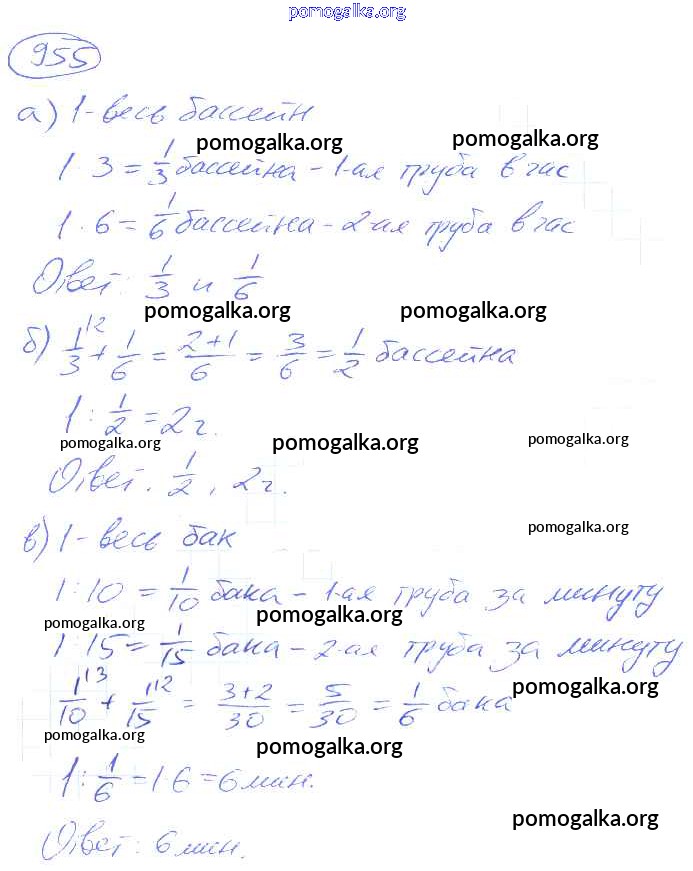 pomogalka.org
955
а) 1 - весь бассейн
pomogalka.org pomogalka.org
1 · 3 = 1/3 бассейна - 1-ая труба в час
1 · 6 = 1/6 бассейна - 2-ая труба в час
Ответ: 1/3 и 1/6
pomogalka.org pomogalka.org
б) 1/3 \2 + 1/6 = 2+1/6 = 3/6 = 1/2 бассейна
1 : 1/2 = 2 ч.
pomogalka.org pomogalka.org pomogalka.org
Ответ. 1/2, 2 ч.
pomogalka.org
в) 1 - весь бак
1 : 10 = 1/10 бака - 1-ая труба за минуту
pomogalka.org pomogalka.org
1 : 15 = 1/15 бака - 2-ая труба за минуту
pomogalka.org
1/10 \3 + 1/15 \2 = 3+2/30 = 5/30 = 1/6 бака
pomogalka.org pomogalka.org
1 : 1/6 = 1·6 = 6 мин.
pomogalka.org
Ответ: 6 мин.